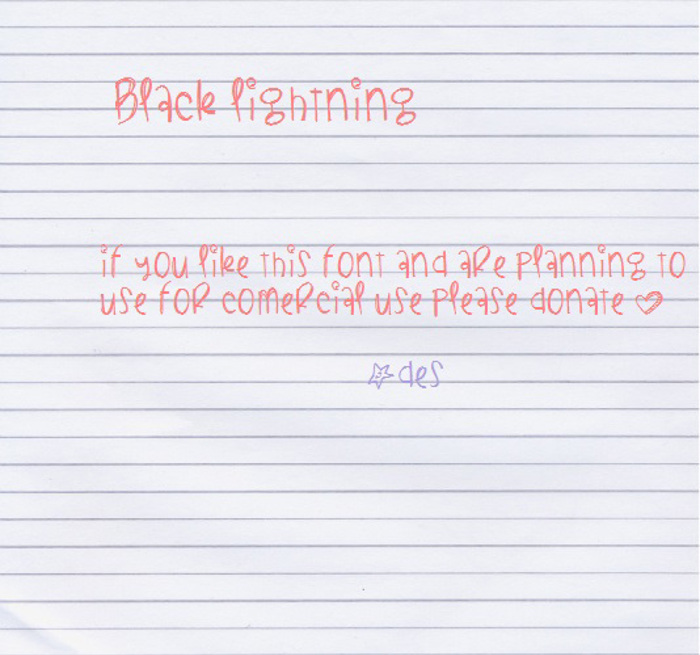 Black lightning
if you like this font and are planning to
use for comercial use please donate ♡
☆ des